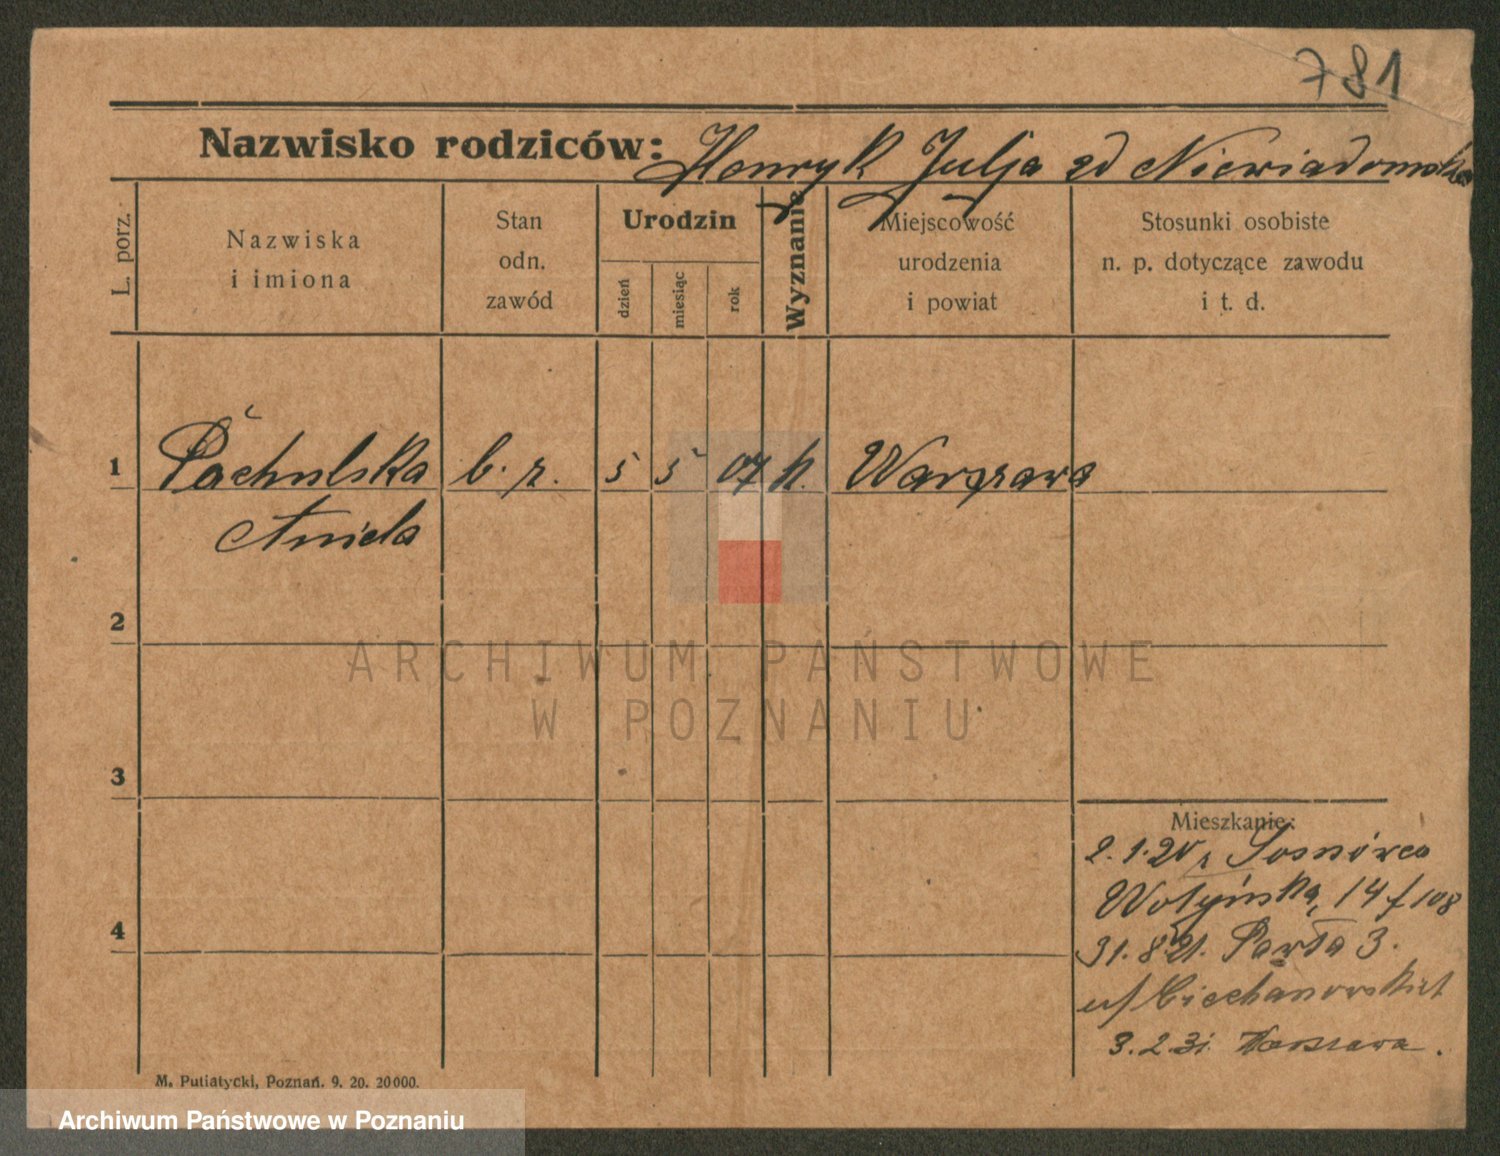 781
Nazwisko rodziców: Henryk Julja zd Niewiadomska
L. porz.
Nazwiska
i imiona
Stan
odn.
zawód
Urodzin
dzień
miesiąc
rok
Wyznanie
Miejscowość
urodzenia
i powiat
Stosunki osobiste
n. p. dotyczące zawodu
i t. d.
1 Pachulska b. r. 5 5 07 k. Warszawa
Aniela
2
ARCHIWUM PAŃSTWOWE
W POZNANIU
3
Mieszkanie:
2.1.20 z Sosnówca
Wołyńska, 14/108
4
31.8.21. Pawła 3.
u/ Ciechanowskich
3.2.31. Warszawa.
M. Putiatycki, Poznań. 9. 20. 20000.
Archiwum Państwowe w Poznaniu